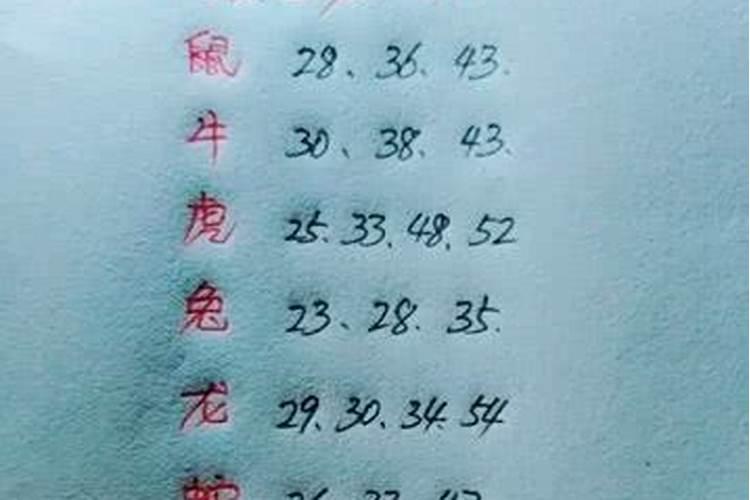 鼠 28、36、43.
牛 30、38、43、
虎 25.33.48.52
兔 23、28.35.
龙 29.30.34.54
蛇